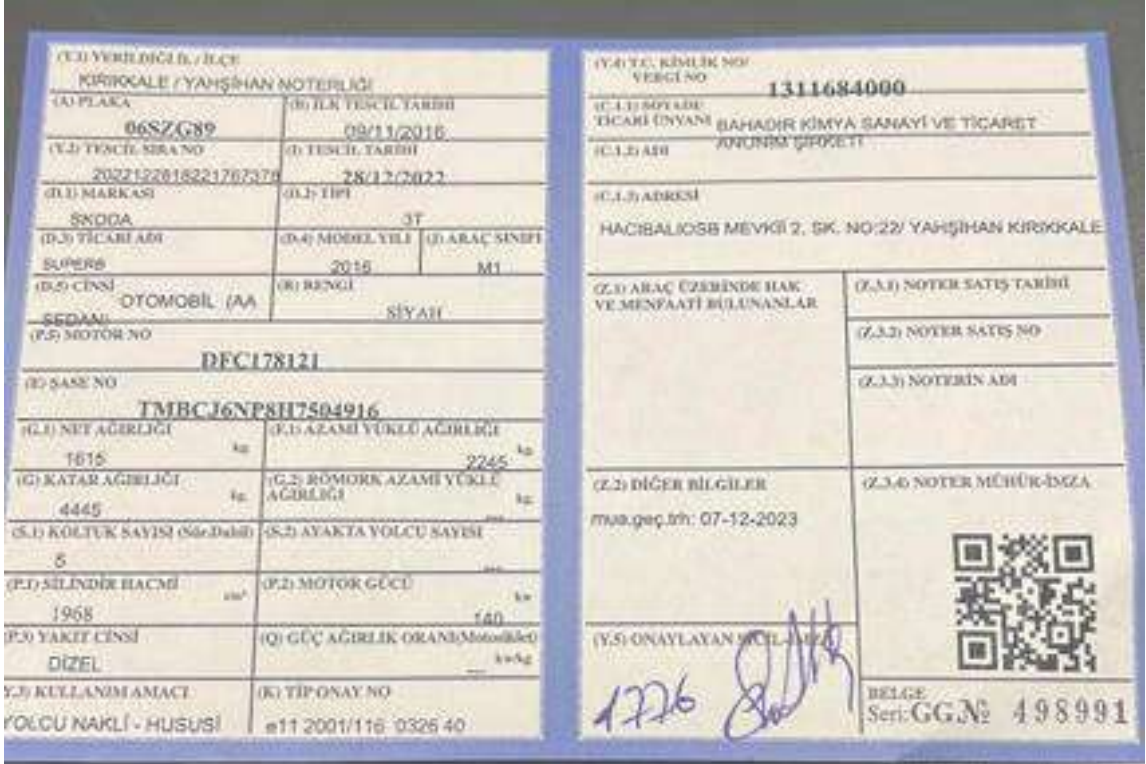 (Y.1) VERİLDİĞİ İL / İLÇE
KIRIKKALE / YAHŞİHAN NOTERLİĞİ
(A) PLAKA
06SZG89
(B) İLK TESCİL TARİHİ
09/11/2016
(Y.2) TESCİL SIRA NO
2022122818221767378
(I) TESCİL TARİHİ
28/12/2022
(D.1) MARKASI
SKODA
(D.2) TİPİ
3T
(D.3) TİCARİ ADI
SUPERB
(D.4) MODEL YILI
2016
(J) ARAÇ SINIFI
M1
(D.5) CİNSİ
OTOMOBİL (AA
SEDAN)
(R) RENGİ
SİYAH
(P.5) MOTOR NO
DFC178121
(E) ŞASE NO
TMBCJ6NP8H7504916
(G.1) NET AĞIRLIĞI
1615 kg
(F.1) AZAMİ YÜKLÜ AĞIRLIĞI
2245 kg
(G) KATAR AĞIRLIĞI
4445 kg
(G.2) RÖMORK AZAMİ YÜKLÜ
AĞIRLIĞI
kg
---
(S.1) KOLTUK SAYISI (Sür.Dahil)
5
(S.2) AYAKTA YOLCU SAYISI
---
(P.1) SİLİNDİR HACMİ
1968 cm³
(P.2) MOTOR GÜCÜ
140 kw
(P.3) YAKIT CİNSİ
DİZEL
(Q) GÜÇ AĞIRLIK ORANI(Motosiklet)
--- kw/kg
(Y.3) KULLANIM AMACI
YOLCU NAKLİ - HUSUSİ
(K) TİP ONAY NO
e11 2001/116 0326 40
(Y.4) T.C. KİMLİK NO/
VERGİ NO
1311684000
(C.1.1) SOYADI/
TİCARİ ÜNVANI
BAHADIR KİMYA SANAYİ VE TİCARET
ANONİM ŞİRKETİ
(C.1.2) ADI
(C.1.3) ADRESİ
HACIBALIOSB MEVKİİ 2. SK. NO:22/ YAHŞİHAN KIRIKKALE
(Z.1) ARAÇ ÜZERİNDE HAK
VE MENFAATİ BULUNANLAR
(Z.3.1) NOTER SATIŞ TARİHİ
(Z.3.2) NOTER SATIŞ NO
(Z.3.3) NOTERİN ADI
(Z.2) DİĞER BİLGİLER
mua.geç.trh: 07-12-2023
(Z.3.4) NOTER MÜHÜR-İMZA
(Y.5) ONAYLAYAN SİCİL-İMZA
1776
BELGE
Seri: GG № 498991